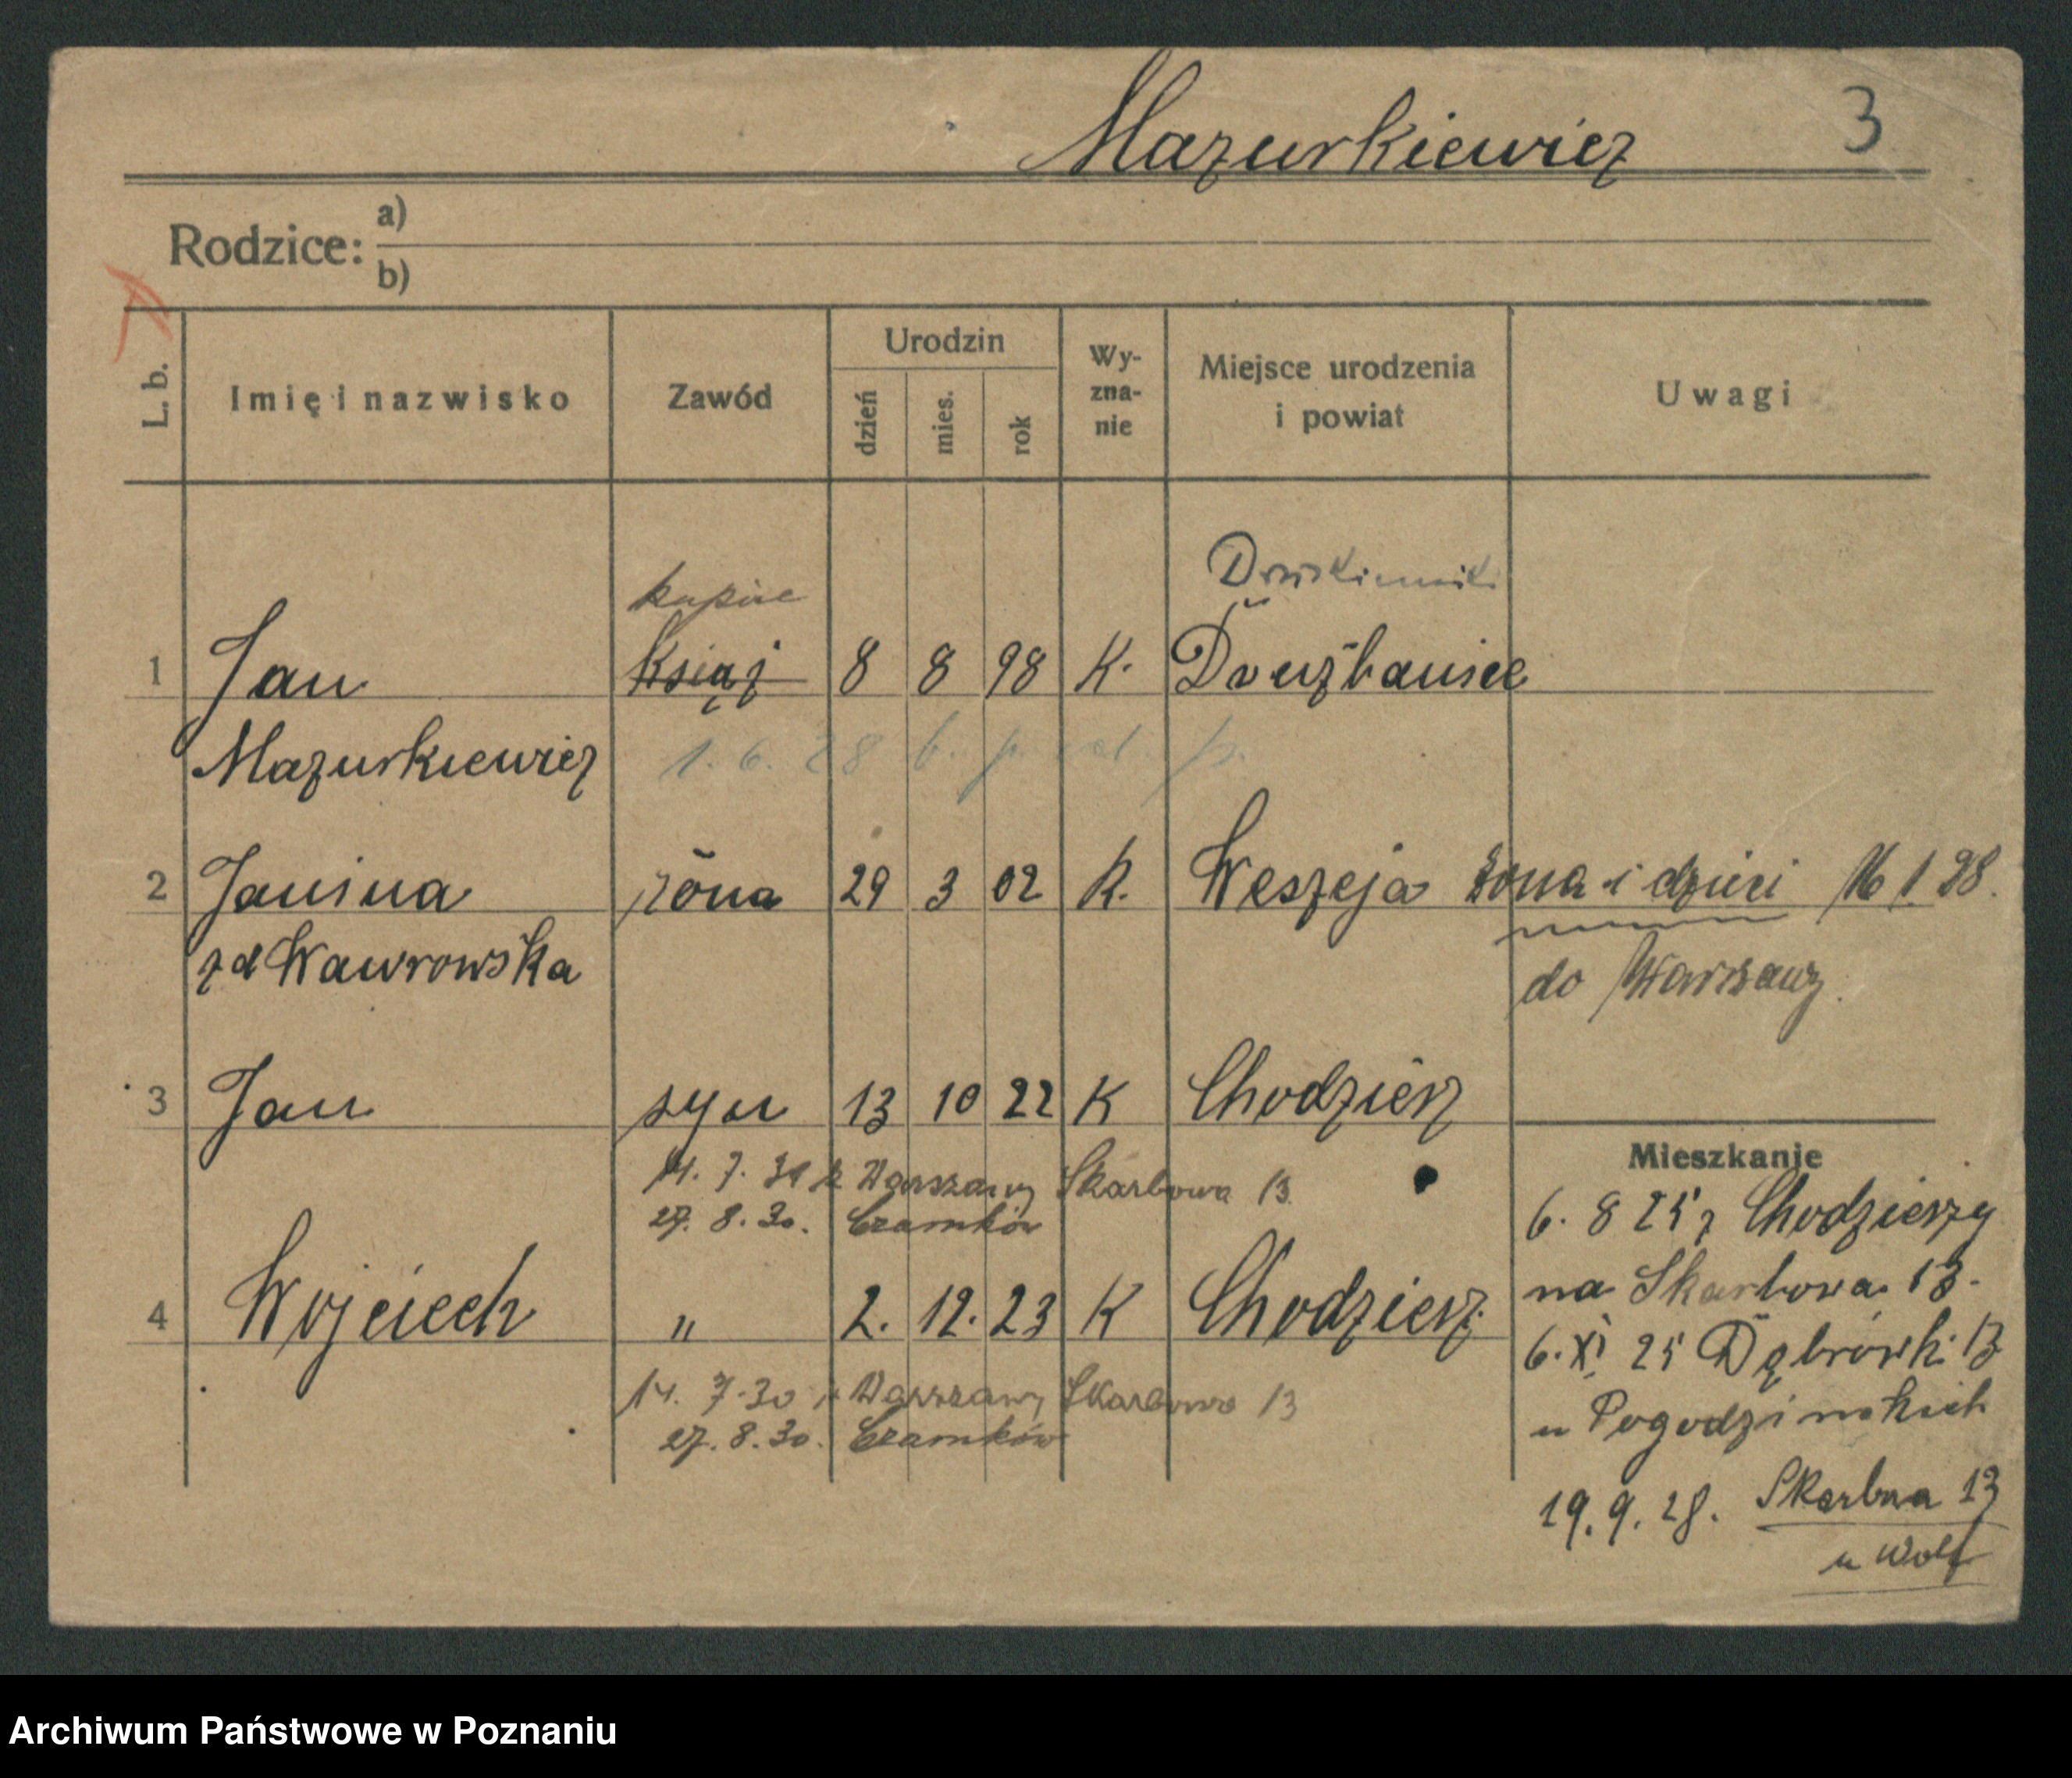 Mazurkiewicz 3
Rodzice: a)
b)
L. b. Imię i nazwisko Zawód Urodzin dzień mies. rok Wy-zna-nie Miejsce urodzenia i powiat Uwagi
kupiec
1 Jan Książ 8 8 98 K.
Mazurkiewicz 1. 6. 28
2 Janina żona 29 3 02 K. Weszeja żona i dzieci 16 1. 28.
zd Wawrowska do Warszawy.
3 Jan syn 13 10 22 K Chodzież
14. 7. 30 z Warszawy Skarbowa 13
27. 8. 30. Czarnków
4 Wojciech " 2. 12. 23 K Chodzież
14. 7. 30 z Warszawy Skarbowa 13
27. 8. 30. Czarnków
Mieszkanie
6. 8 25 z Chodzieży
na Skarbowa 13.
6. XI 25 Dąbrówki 13
u Pogodzińskich
19. 9. 28. Skarbna 13
u Wolf
Archiwum Państwowe w Poznaniu